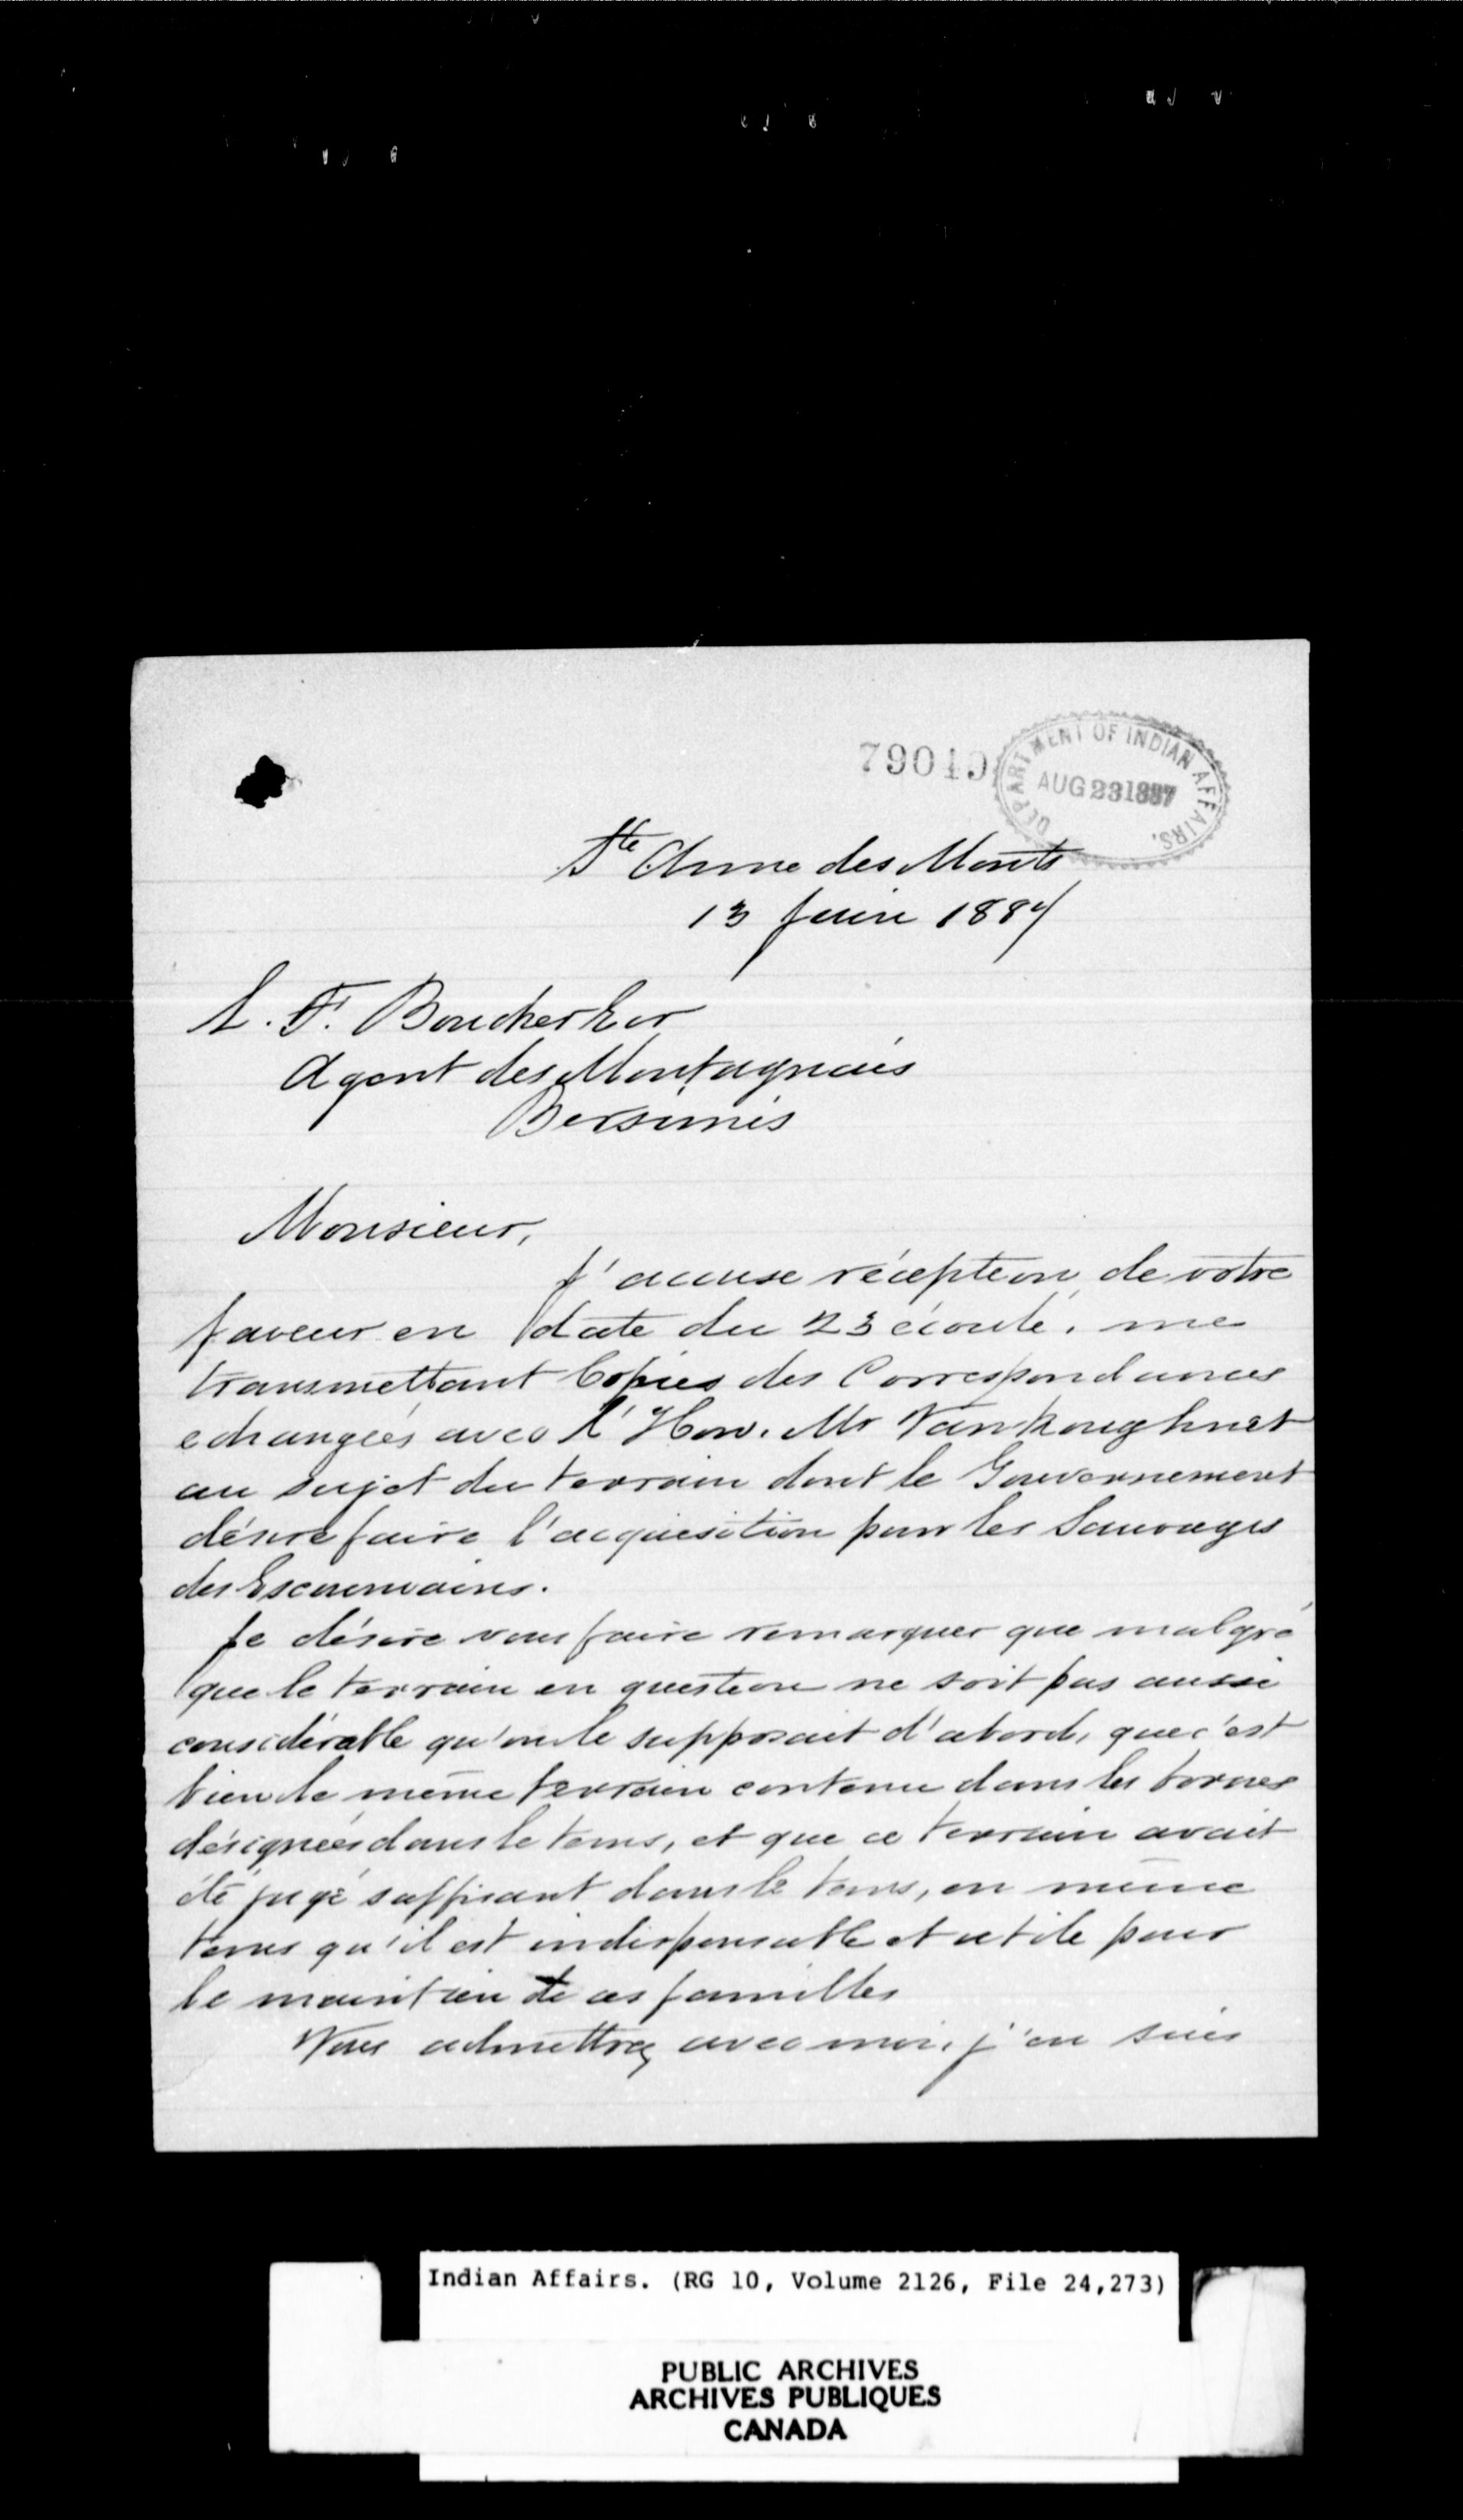 79019
DEPARTMENT OF INDIAN AFFAIRS.
AUG 23 1887
Ste Anne des Monts
13 Juin 1887
L. F. Boucher Ecr
Agent des Montagnais
Bersimis
Monsieur,
J'accuse réception de votre
faveur en date du 23 écoulé, me
transmettant Copies des Correspondances
echangées avec l'Hon. Mr Vankoughnet
au sujet du terrain dont le Gouvernement
désire faire l'acquisition pour les Sauvages
des Escoumains.
Je désire vous faire remarquer que malgré
que le terrain en question ne soit pas aussi
considérable qu'on le supposait d'abord, que c'est
bien le même terrain contenu dans les bornes
désignées dans le tems, et que ce terrain avait
été jugé suffisant dans le tems, en même
tems qu'il est indispensable et utile pour
le maintien de ces familles
Vous admettrez avec moi, j'en suis
Indian Affairs. (RG 10, Volume 2126, File 24,273)
PUBLIC ARCHIVES
ARCHIVES PUBLIQUES
CANADA